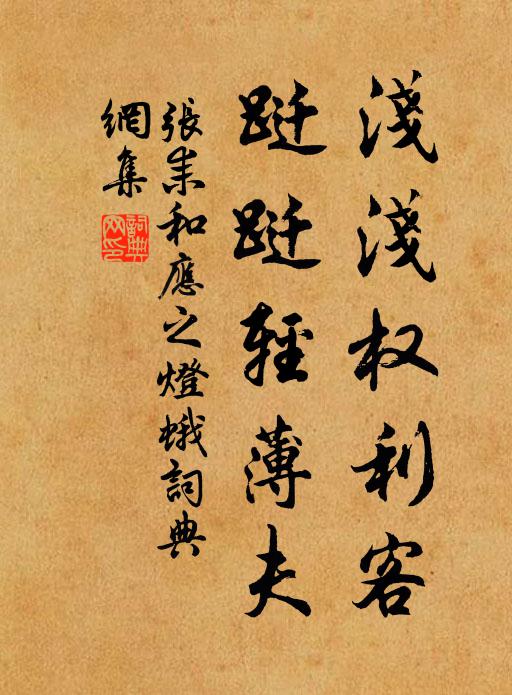 淺淺权利客
跹跹輕薄夫
張耒和應之燈蛾詞典
網集
詞典網印